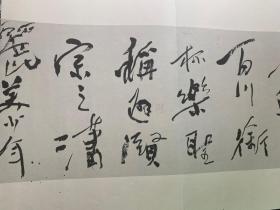 百川銜
杯樂聖
稱避賢
宗之瀟
灑美少年